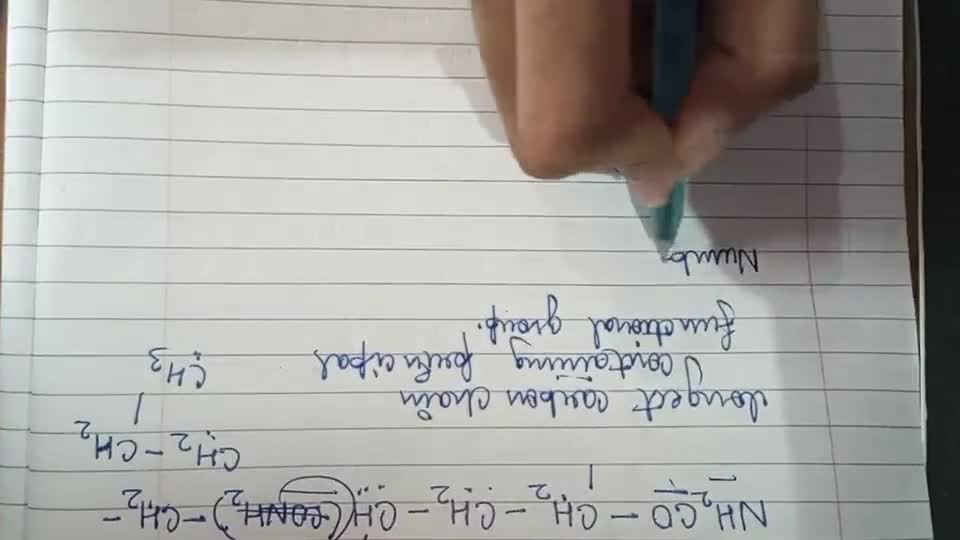 NH₂CO - CH₂ - CH₂ - CH(CONH₂) - CH₂ -
CH₂ - CH₂
CH₃
longest carbon chain
containing principal
functional group.
Numb